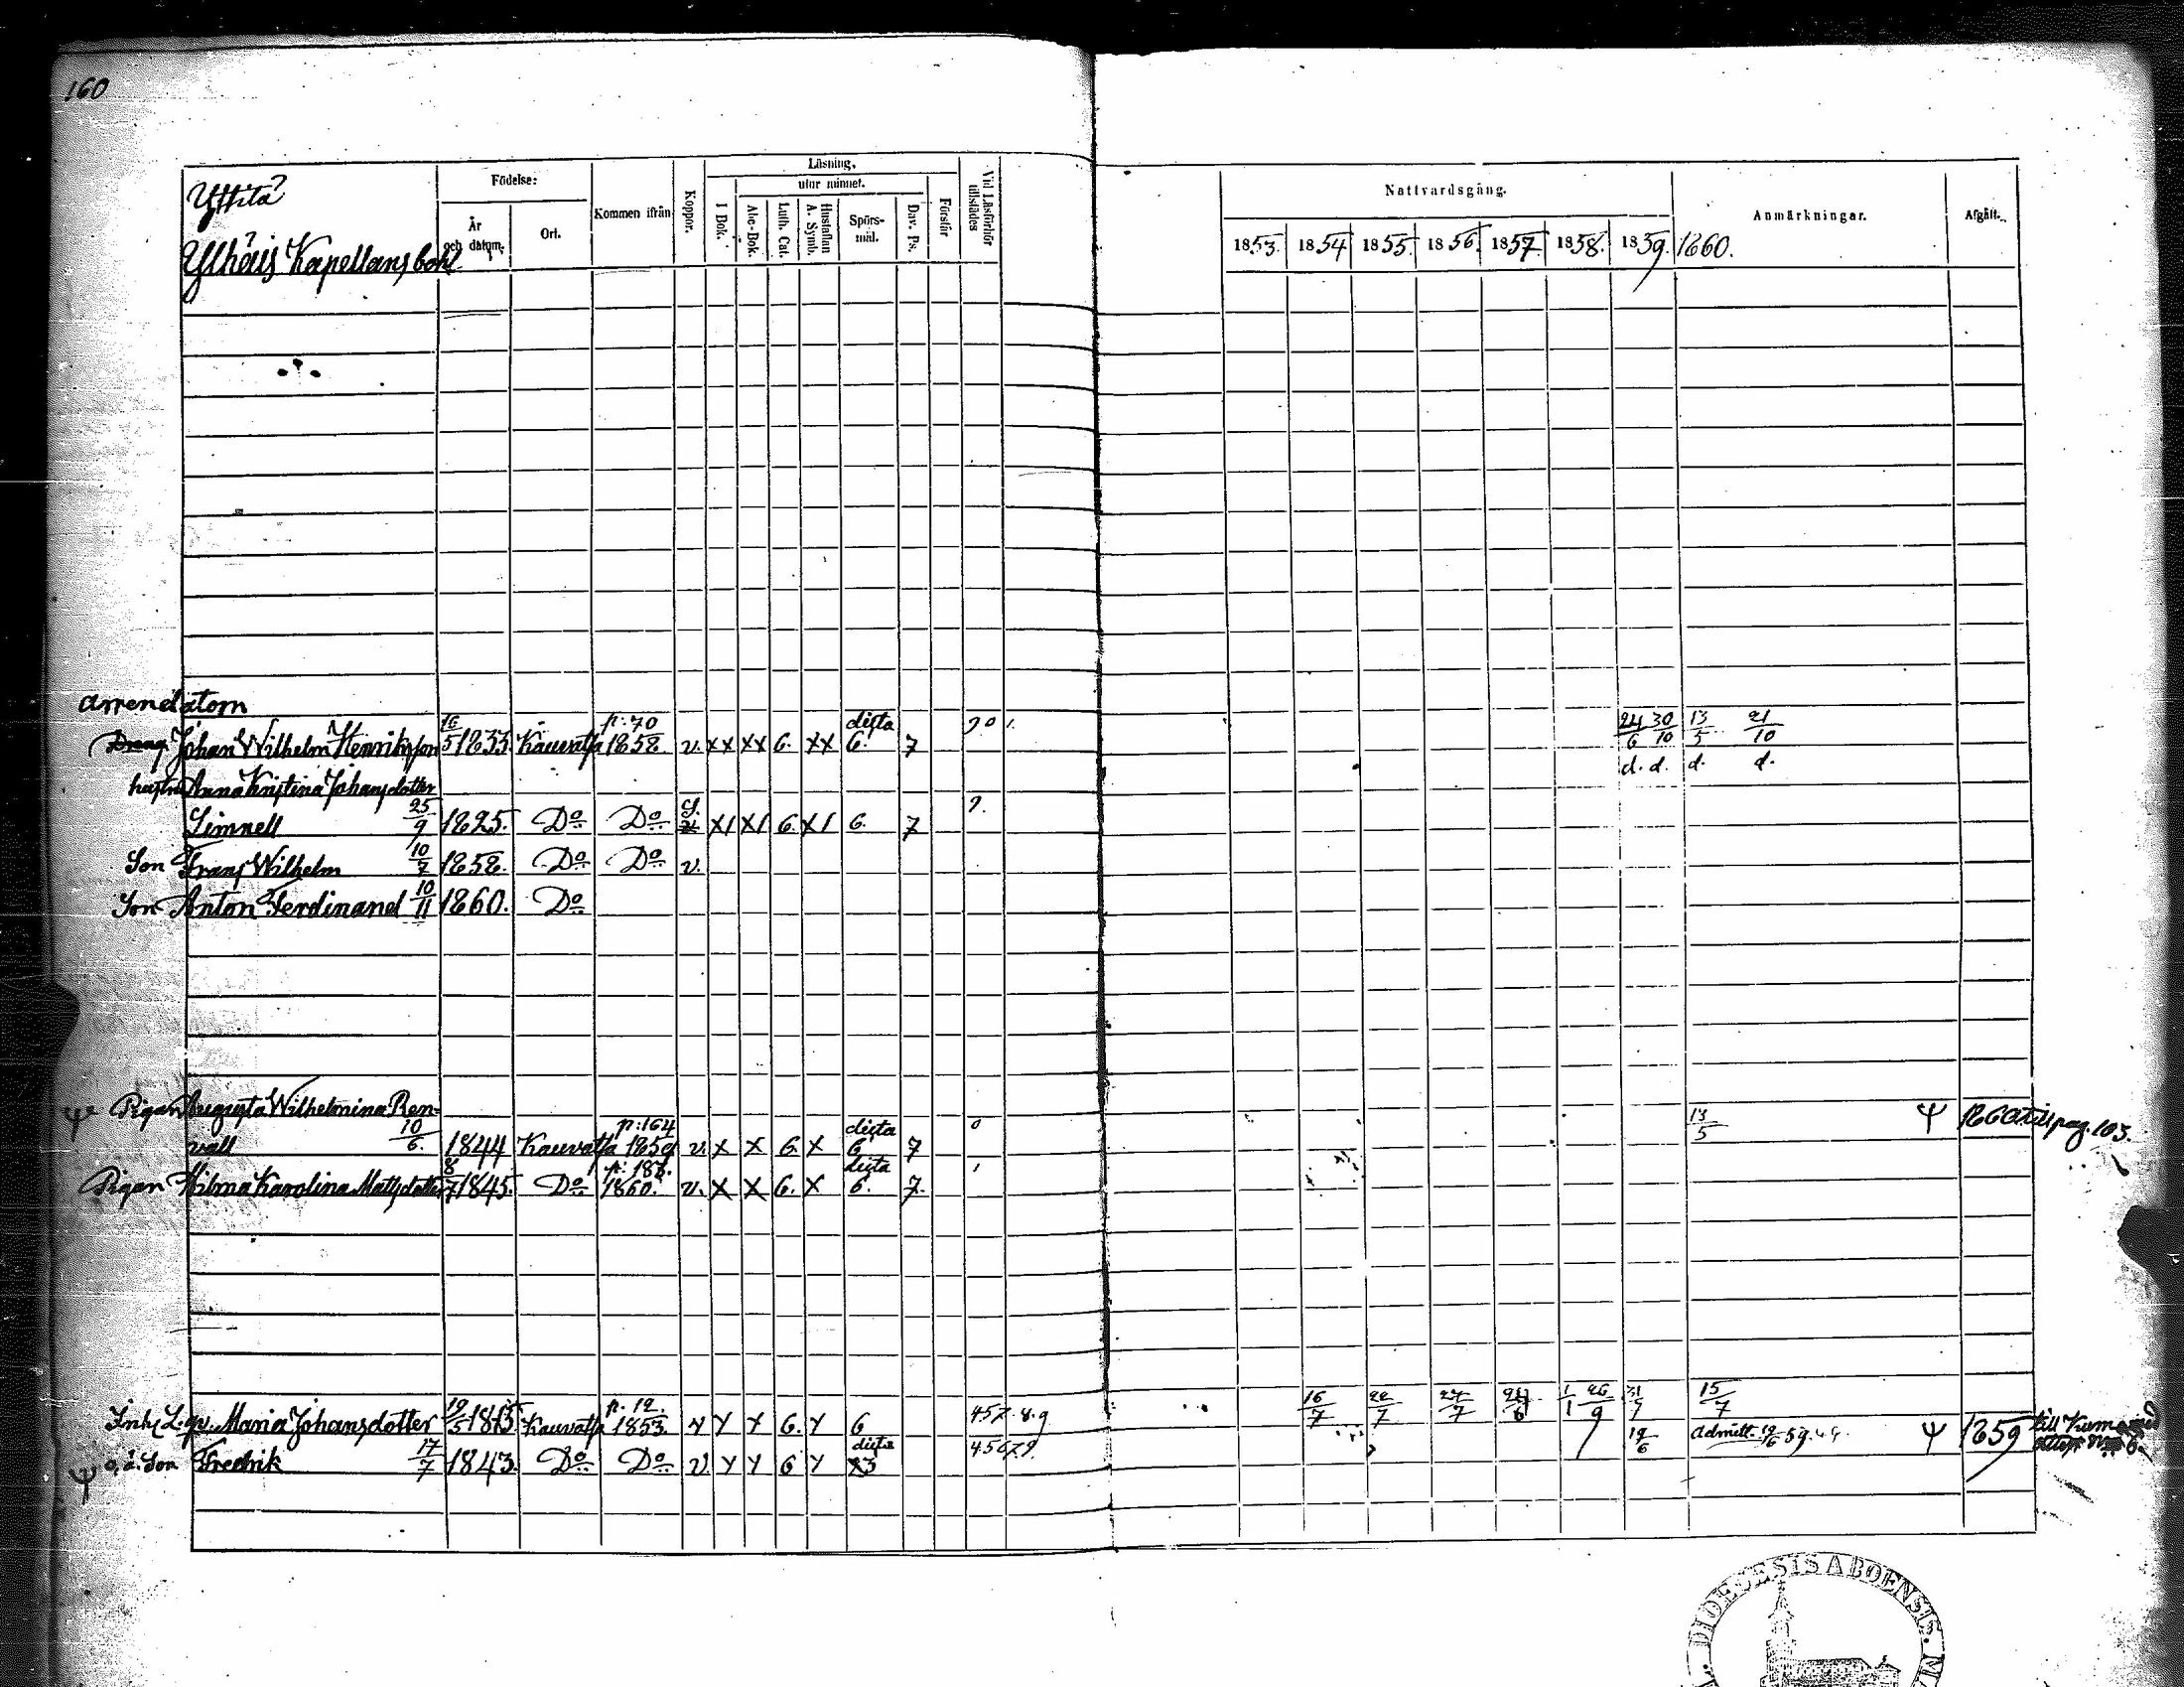 160
Yttilä
Ylhäis Kapellans bohl
Födelse:
År och datum.
Ort.
Kommen ifrån
Koppor.
Läsning.
I Bok.
utur minnet.
Abc-Bok.
Luth. Cat.
Hustaflan A. Symb.
Spörs-mål.
Dav. Ps.
Förstår
Vid Läsförhör tillstädes
Nattvardsgång.
1853. 1854 1855 1856. 1857. 1858. 1859. 1860.
Anmärkningar.
Afgått.
Arrendatorn
Dreng Johan Wilhelm Henriksson 16/5 1833. Kauvatsa p: 70 1858. v. XX XX 6. XX dicta 6. 7 24/6 30/10 13/5 21/10
d. d. d. d.
hustru Anna Kristina Johansdotter
Limnell 25/9 1825. Do Do XI XI 6. XI 6. 7 9.
Son Frans Wilhelm 10/7 1858. Do Do v.
Son Anton Ferdinand 10/11 1860. Do
Ψ Pigan Augusta Wilhelmina Ren-
vall 10/6. 1844 Kauvatsa p: 164 1859 v. X X 6. X dicta 6 7 0 13/5 Ψ 1860 till pag. 103.
Pigan Hilma Karolina Mattsdotter 8/7 1845. Do p: 187. 1860. v. X X 6. X dicta 6. 7.
Inh. Maria Johansdotter 19/5 1815 Kauvatsa p. 12. 1853. Y Y Y 6. Y 6 457.8.9 16/7 22/7 27/7 1/1 26/9 31/7 15/7
Ψ o. ä. Son Fredrik 17/7 1843. Do Do v. Y Y 6 Y dicta X3 45679. 19/6 admitt. 19/6 59. Ψ 1859 till Kumo